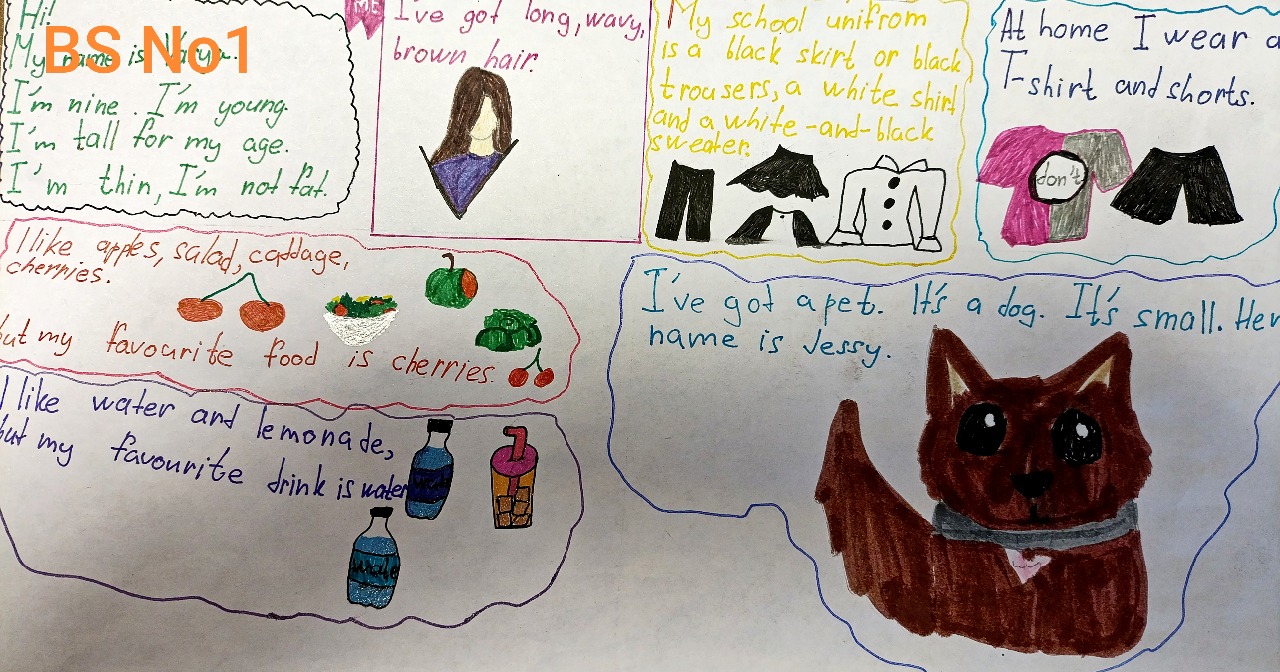 Hi!
BS No1
My name is
I'm nine. I'm young.
I'm tall for my age.
I'm thin, I'm not fat.
ME
I've got long, wavy,
brown hair.
My school unifrom
is a black skirt or black
trousers, a white shirt
and a white-and-black
sweater.
At home I wear a
T-shirt and shorts.
don't
I like apples, salad, cabbage,
cherries.
but my favourite food is cherries.
I like water and lemonade,
but my favourite drink is water
I've got a pet. It's a dog. It's small. Her
name is Jessy.